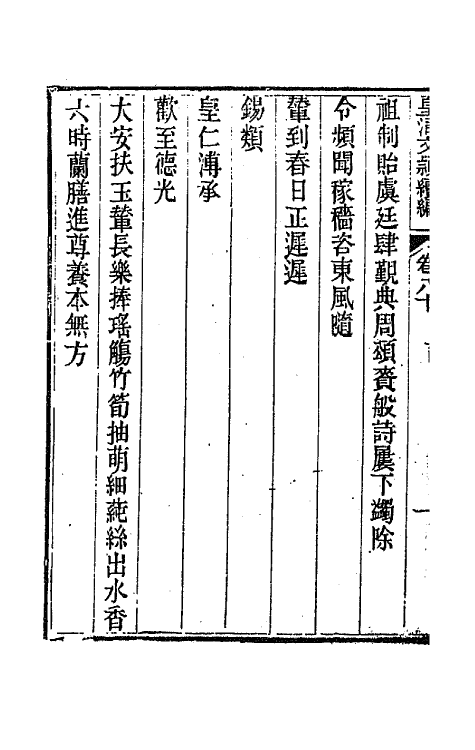 皇清文穎續編 卷八十
祖制貽虞廷肆覲典周頌賚般詩屢下蠲除
令頻聞稼穡咨東風隨
輦到春日正遲遲
錫類
皇仁溥承
歡至德光
大安扶玉輦長樂捧瑤觴竹筍抽萌細蒓絲出水香
六時蘭膳進尊養本無方